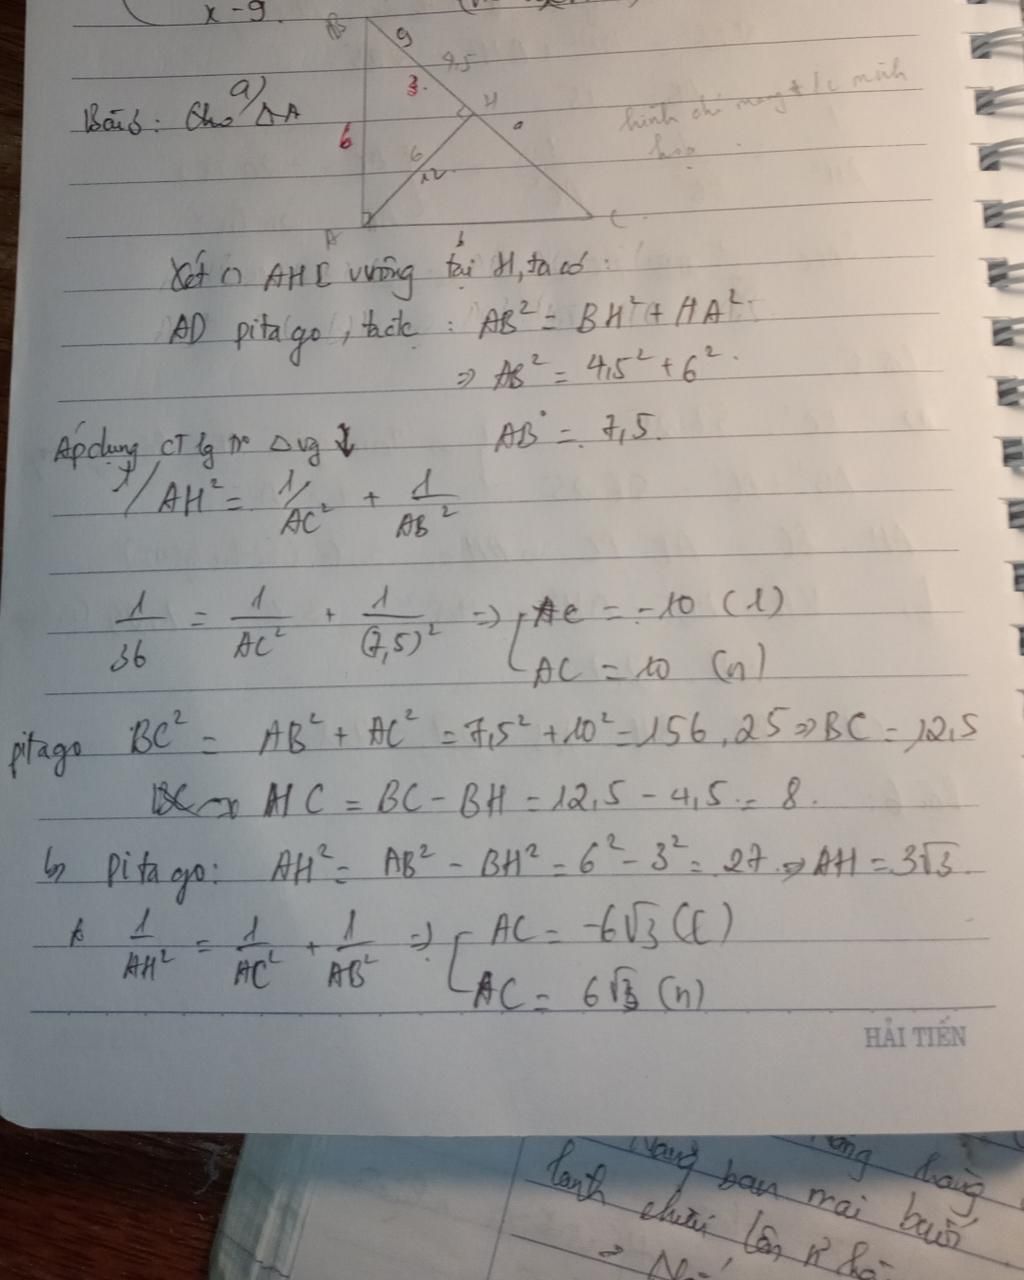 x - 9.
B 9
9,5
a) 3. H
Bài 5: Cho Δ A
hình chỉ mang t/c minh
6
6
12
A C
Xét Δ AHC vuông tại H, ta có:
AD pitago, : AB² = BH² + HA²
=> AB² = 4,5² + 6².
Áp dụng CT lg Δ vg ↓ AB = 7,5.
1/AH² = 1/AC² + 1/AB²
1/36 = 1/AC² + 1/(7,5)² => [ AC = -10 (l)
AC = 10 (n)
pitago BC² = AB² + AC² = 7,5² + 10² = 156,25 => BC = 12,5
HC = BC - BH = 12,5 - 4,5 = 8.
b, Pitago: AH² = AB² - BH² = 6² - 3² = 27 => AH = 3√3
1/AH² = 1/AC² + 1/AB² => [ AC = -6√3 (l)
AC = 6√3 (n)
HẢI TIẾN
ban mai